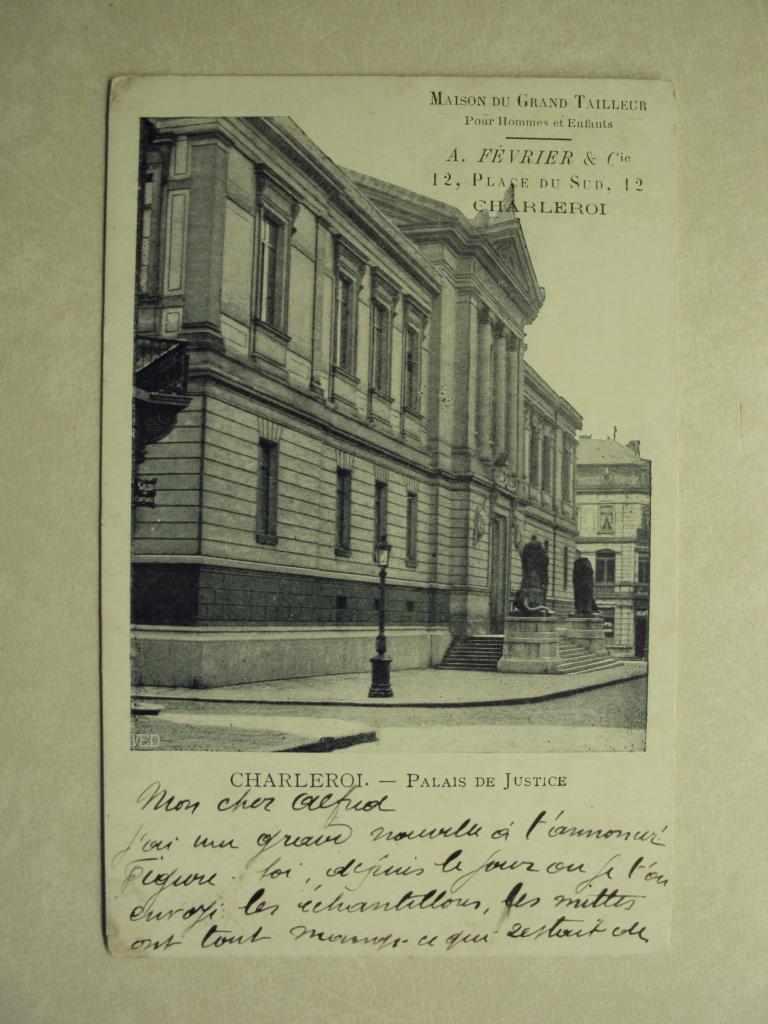 MAISON DU GRAND TAILLEUR
Pour Hommes et Enfants
A. FÉVRIER & Cie
12, PLACE DU SUD, 12
CHARLEROI
VED
CHARLEROI. — PALAIS DE JUSTICE
Mon cher Alfred
J'ai une grave nouvelle à t'annoncer
Figure-toi, depuis le jour où je t'en
envoyé les échantillons, les mittes
ont tout mangé ce qui restait de